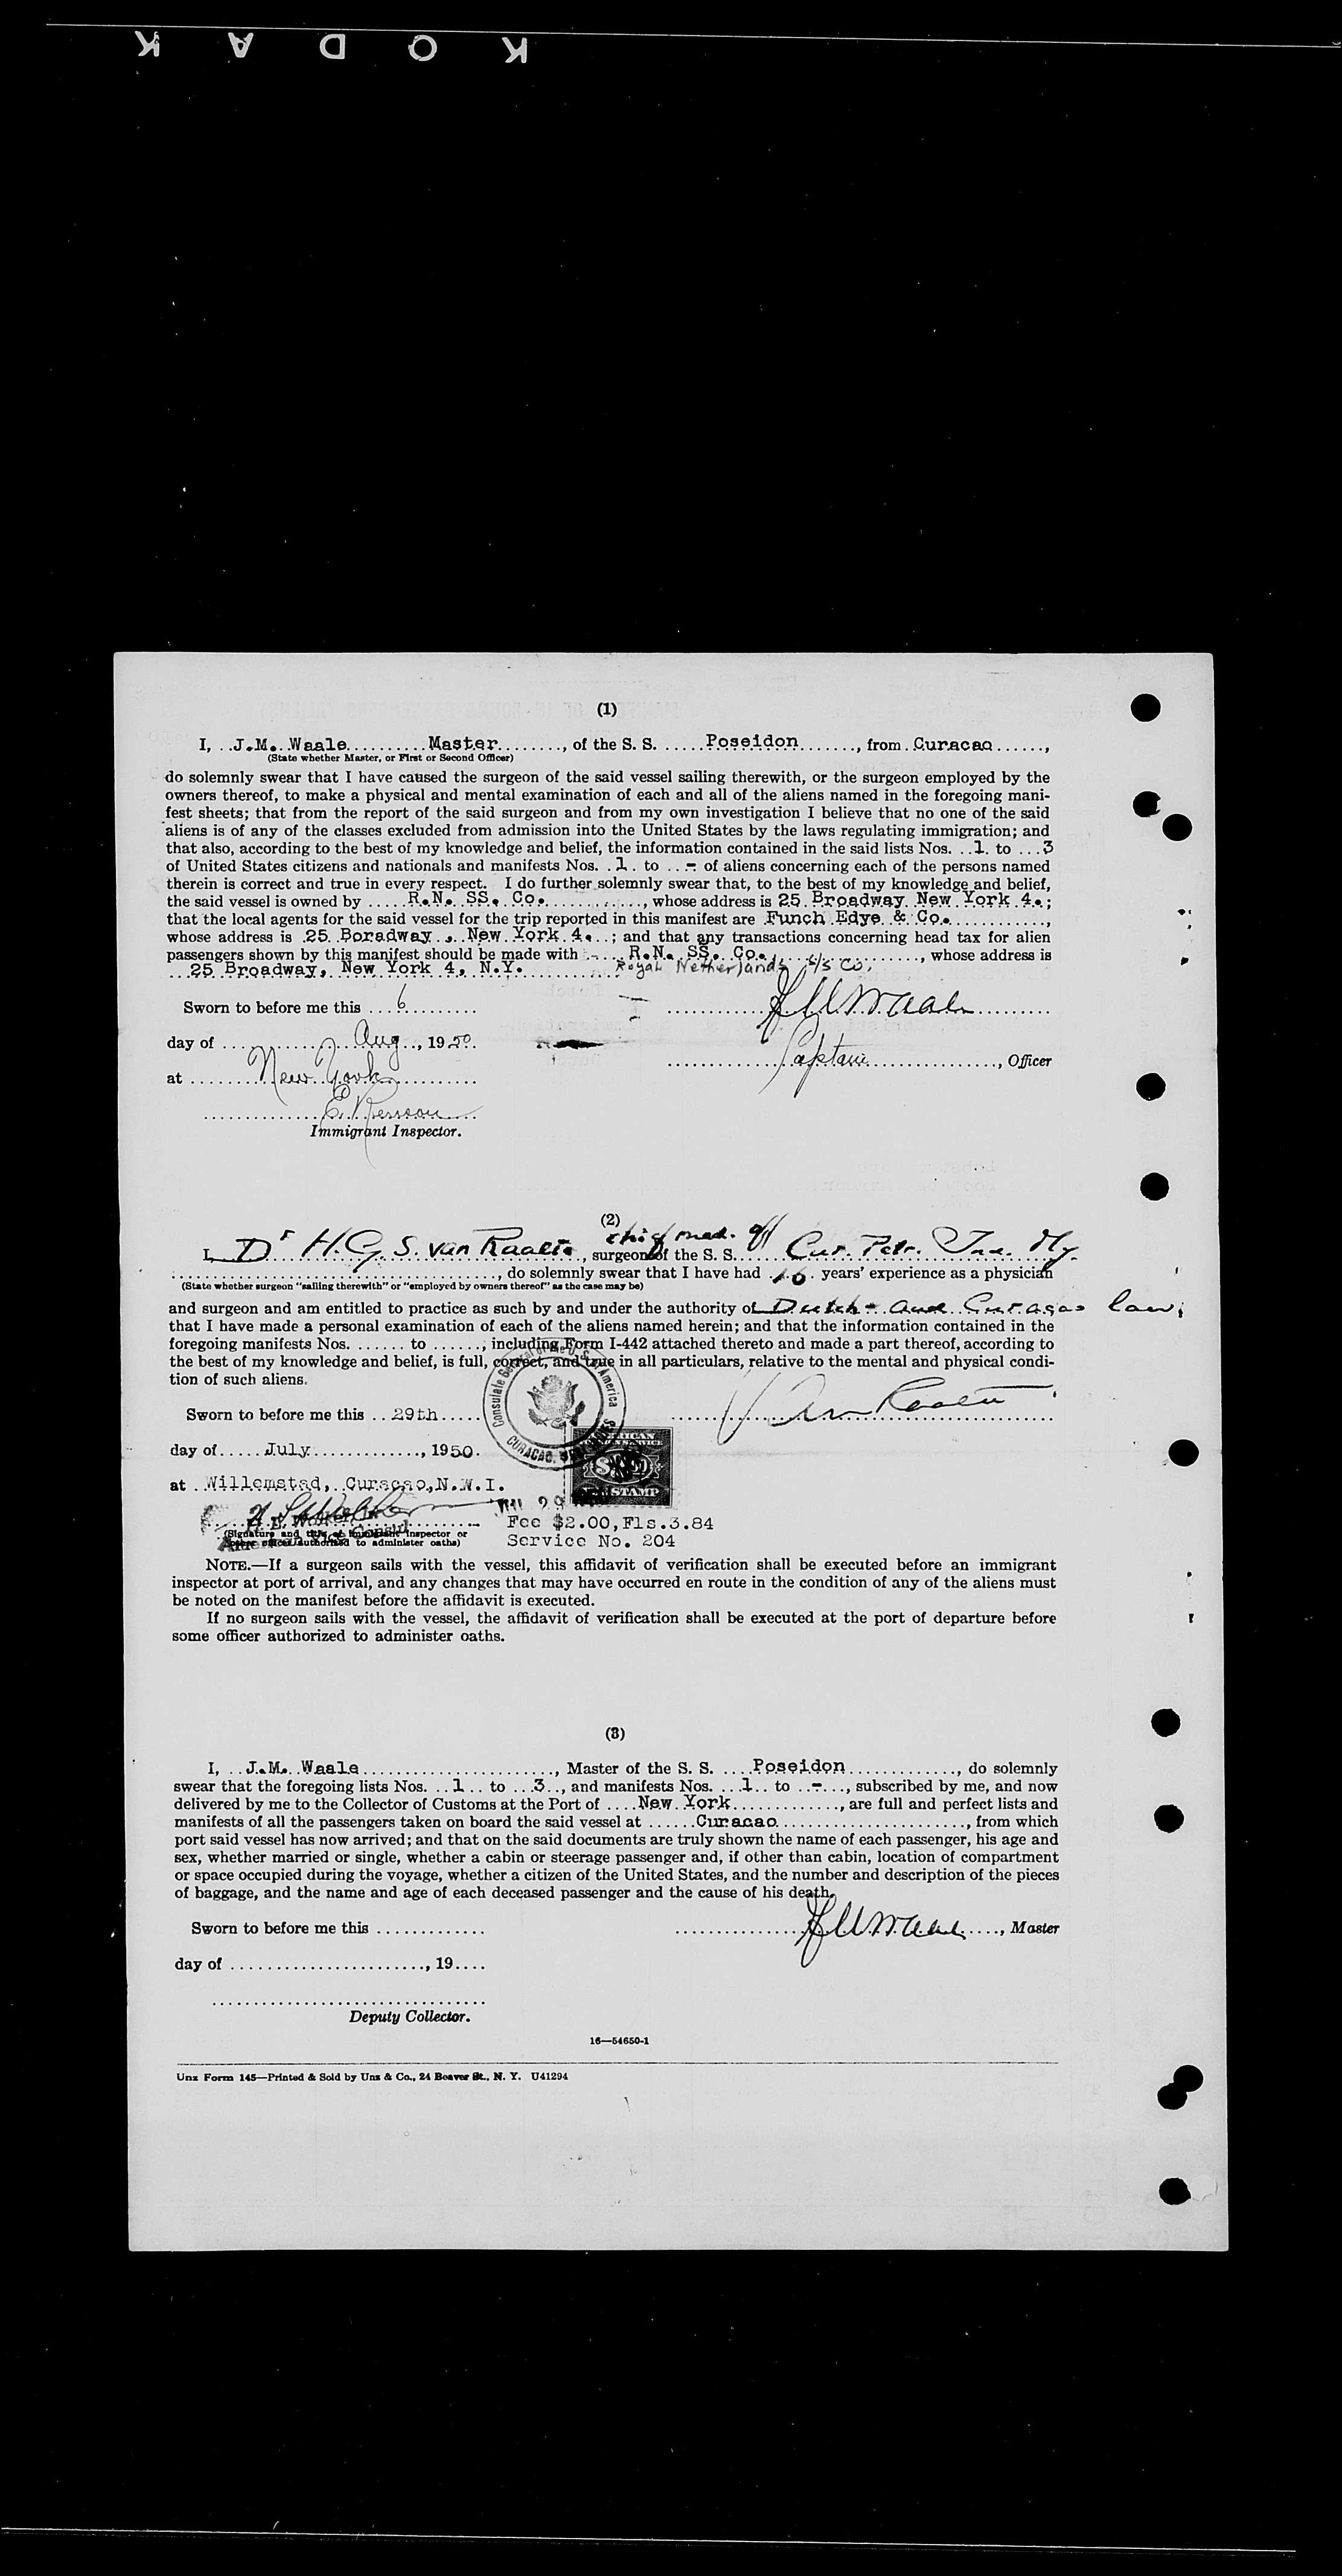 KODAK
(1)
I, ..J.M. Waale..........Master........, of the S. S. ......Poseidon......., from .Curacao......,
(State whether Master, or First or Second Officer)
do solemnly swear that I have caused the surgeon of the said vessel sailing therewith, or the surgeon employed by the
owners thereof, to make a physical and mental examination of each and all of the aliens named in the foregoing mani-
fest sheets; that from the report of the said surgeon and from my own investigation I believe that no one of the said
aliens is of any of the classes excluded from admission into the United States by the laws regulating immigration; and
that also, according to the best of my knowledge and belief, the information contained in the said lists Nos. ..1. to ...3
of United States citizens and nationals and manifests Nos. .1. to ...- of aliens concerning each of the persons named
therein is correct and true in every respect. I do further solemnly swear that, to the best of my knowledge and belief,
the said vessel is owned by .....R.N. SS. Co..............., whose address is 25 Broadway New York 4.;
that the local agents for the said vessel for the trip reported in this manifest are .Funch Edye & Co.............,
whose address is .25 Boradway , New York 4...; and that any transactions concerning head tax for alien
passengers shown by this manifest should be made with ......R.N. SS. Co....................., whose address is
...25 Broadway, New York 4, N.Y. Royal Netherlands S/S Co.
Sworn to before me this ....6..........
day of ............ Aug..., 1950.
Captain..................., Officer
at ........New York............
Immigrant Inspector.
(2)
chief med. off
I, Dr H.G.S. van Raalte, surgeon of the S. S...... Cur. Petr. Ind. My.
......................................., do solemnly swear that I have had .16. years' experience as a physician
(State whether surgeon "sailing therewith" or "employed by owners thereof" as the case may be)
and surgeon and am entitled to practice as such by and under the authority of Dutch- and Curaçao law;
that I have made a personal examination of each of the aliens named herein; and that the information contained in the
foregoing manifests Nos. ....... to ......, including Form I-442 attached thereto and made a part thereof, according to
the best of my knowledge and belief, is full, correct, and true in all particulars, relative to the mental and physical condi-
tion of such aliens.
Consulate General of the U.S. of America
Sworn to before me this ..29th.....
van Raalte
day of.....July............, 1950.
AMERICAN
at ..Willemstad, Curaçao, N.W.I.
STAMP
American Vice Consul
Fee $2.00, Fls.3.84
(Signature and title of Immigrant Inspector or
other officer authorized to administer oaths)
Service No. 204
NOTE.—If a surgeon sails with the vessel, this affidavit of verification shall be executed before an immigrant
inspector at port of arrival, and any changes that may have occurred en route in the condition of any of the aliens must
be noted on the manifest before the affidavit is executed.
If no surgeon sails with the vessel, the affidavit of verification shall be executed at the port of departure before
some officer authorized to administer oaths.
(3)
I, ..J.M. Waale........................, Master of the S. S. ....Poseidon............., do solemnly
swear that the foregoing lists Nos. ..1.. to ...3.., and manifests Nos. ...1.. to ..-..., subscribed by me, and now
delivered by me to the Collector of Customs at the Port of ....New York............., are full and perfect lists and
manifests of all the passengers taken on board the said vessel at ......Curacao......................, from which
port said vessel has now arrived; and that on the said documents are truly shown the name of each passenger, his age and
sex, whether married or single, whether a cabin or steerage passenger and, if other than cabin, location of compartment
or space occupied during the voyage, whether a citizen of the United States, and the number and description of the pieces
of baggage, and the name and age of each deceased passenger and the cause of his death.
Sworn to before me this .............
JMWaale ...., Master
day of ......................, 19....
Deputy Collector.
16—54650-1
Unz Form 145—Printed & Sold by Unz & Co., 24 Beaver St., N. Y. U41294